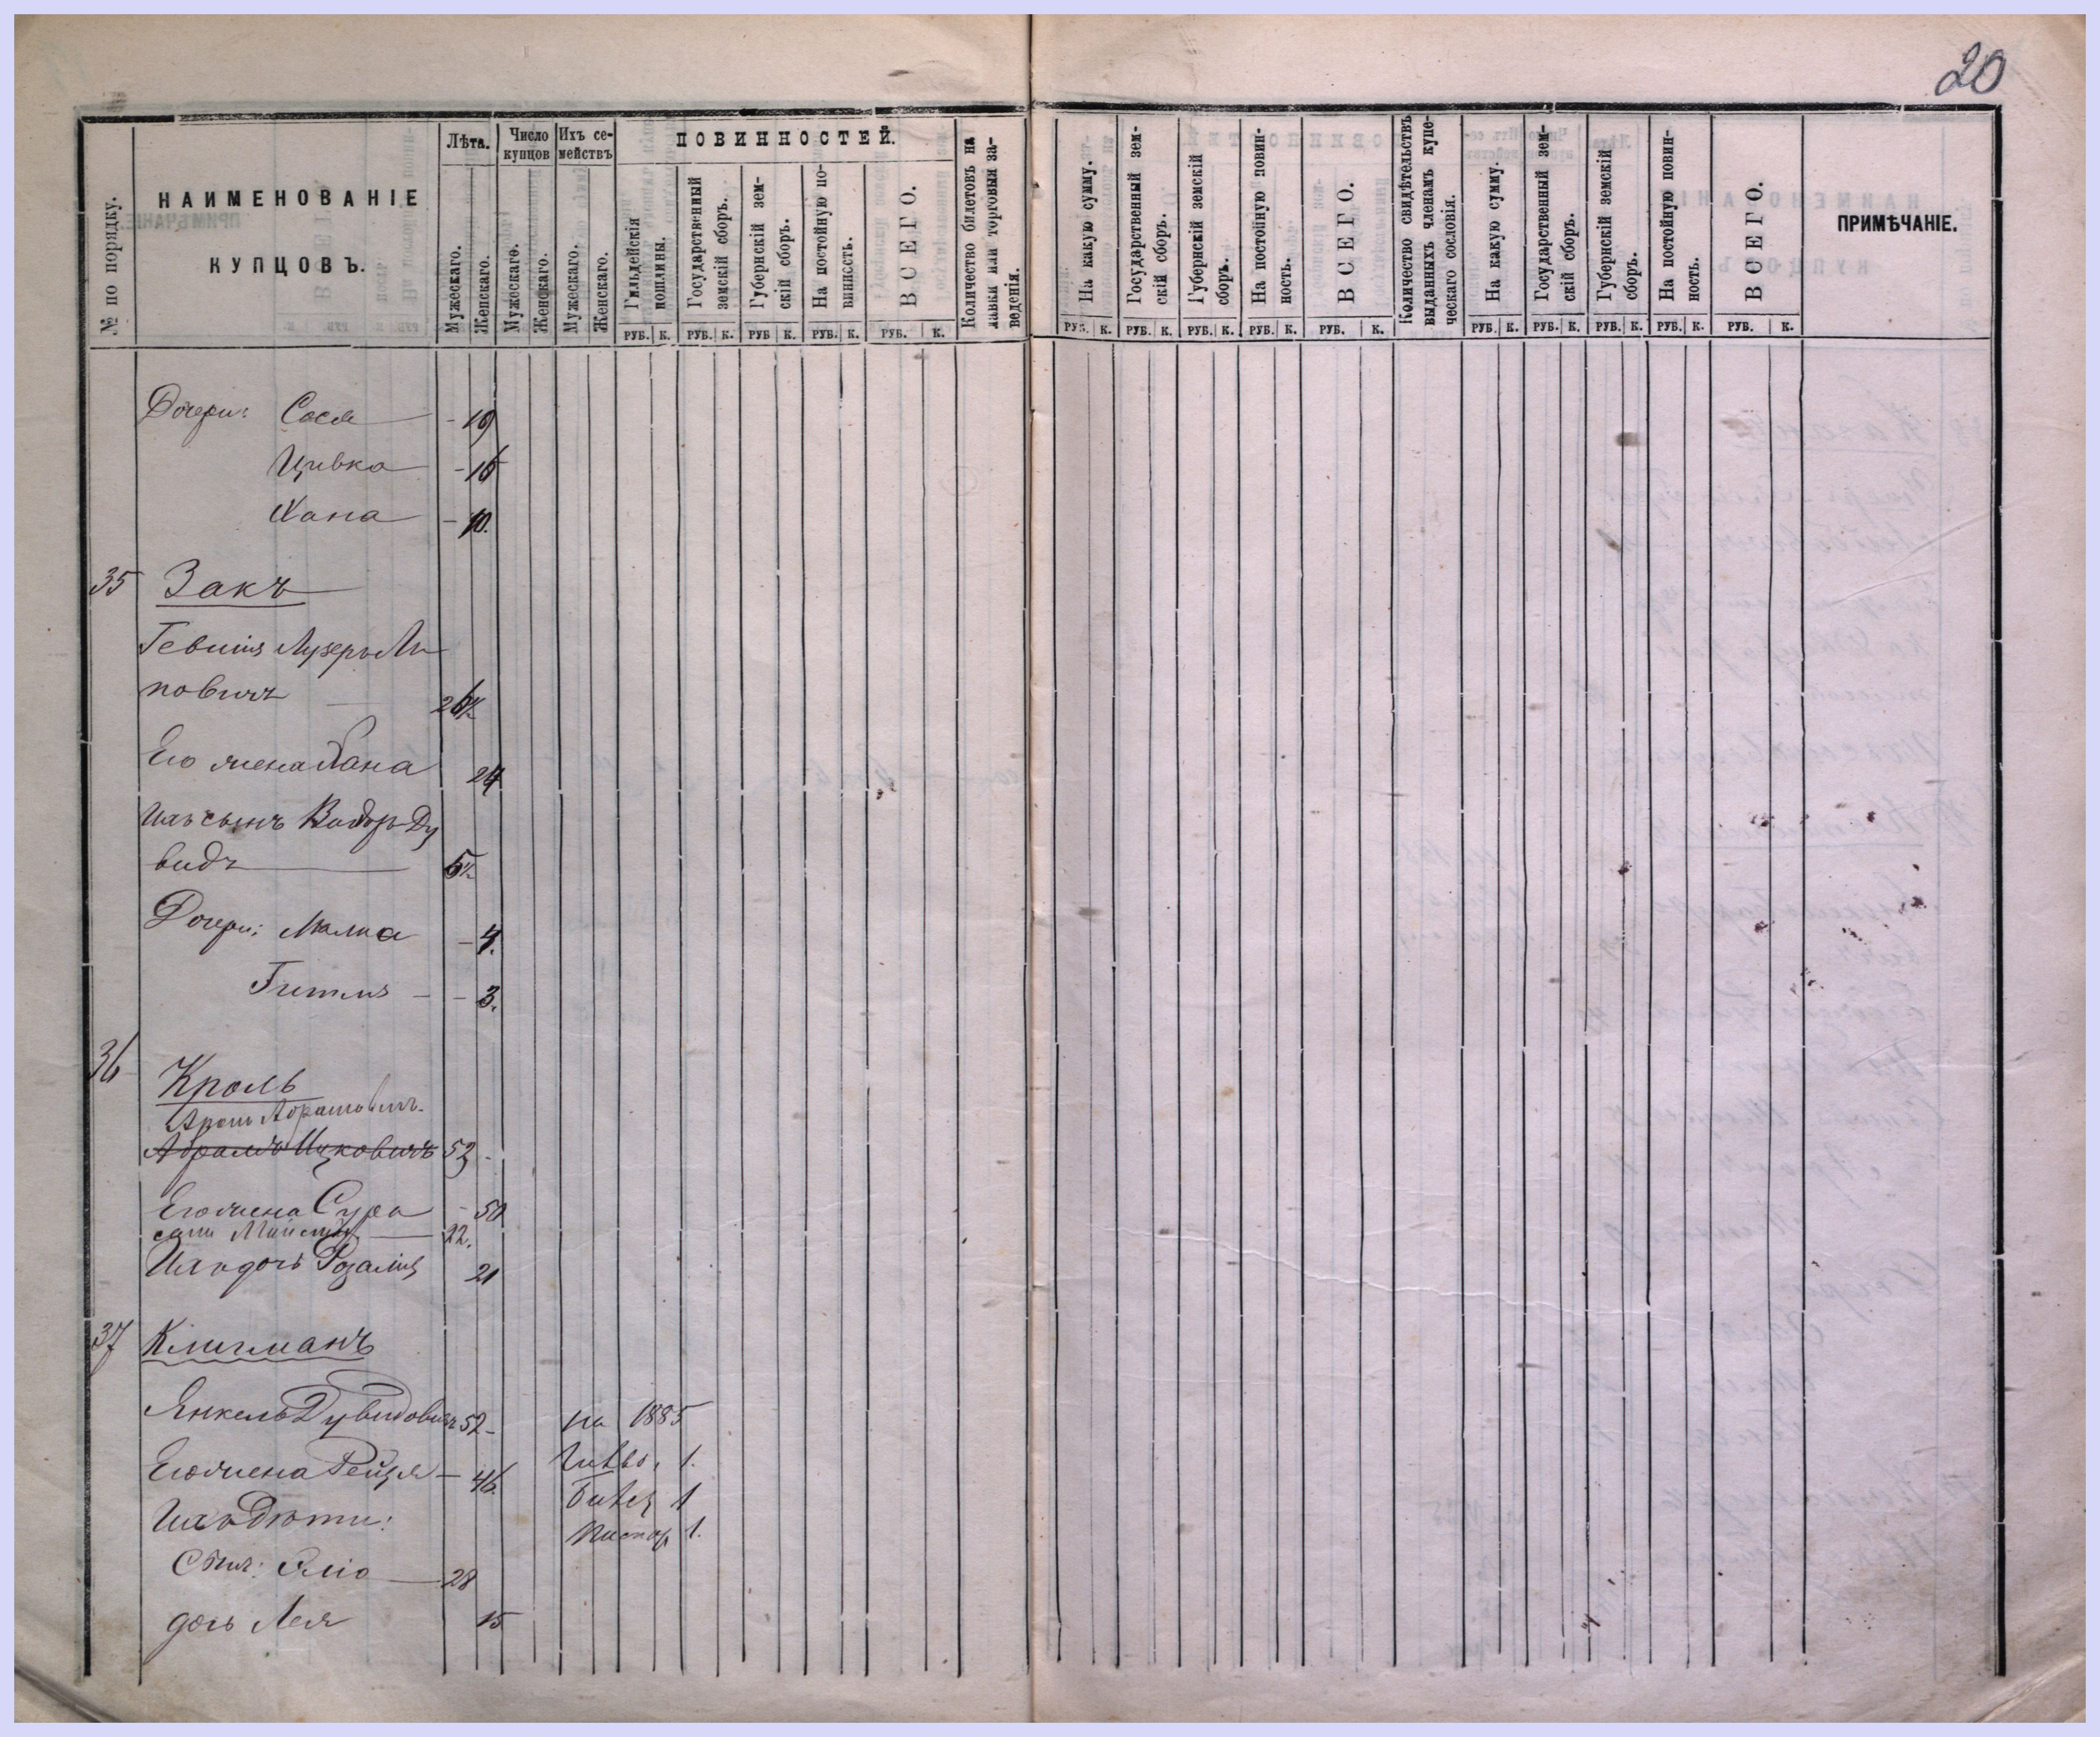 20
№ по порядку.
НАИМЕНОВАНІЕ
КУПЦОВЪ.
Лѣта.
Мужескаго.
Женскаго.
Число купцовъ
Мужескаго.
Женскаго.
Ихъ се-
мействъ
Мужескаго.
Женскаго.
ПОВИННОСТЕЙ.
Гильдейскія
пошлины.
Государственный
земскій сборъ.
Губернскій зем-
скій сборъ.
На постойную по-
винность.
ВСЕГО.
Количество билетовъ на
лавки или торговыя за-
веденія.
На какую сумму.
Государственный зем-
скій сборъ.
Губернскій земскій
сборъ.
На постойную повин-
ность.
ВСЕГО.
Количество свидѣтельствъ
выданныхъ членамъ купе-
ческаго сословія.
На какую сумму.
Государственный зем-
скій сборъ.
Губернскій земскій
сборъ.
На постойную повин-
ность.
ВСЕГО.
ПРИМѢЧАНІЕ.
РУБ. К. РУБ. К. РУБ К. РУБ. К. РУБ. К. РУБ. К. РУБ. К. РУБ. К. РУБ. К. РУБ. К. РУБ. К. РУБ. К. РУБ. К. РУБ. К. РУБ. К.
Дочери: Сося - 19
Цивка - 16
Хана - 10.
35 Закъ
Гевшія Лузеръ Ли
повичъ 26½
Его жена Хана 24
Ихъ сынъ Ду
видъ 5½
Дочери: Малка - 4.
Гитля - - 3.
36 Кроль
Аронъ Абрамовичъ.
Абрамъ Ицковичъ 53 -
Его жена Сура - 50
22.
Ихъ дочь Розалія 21
37 Клигманъ
Янкель Дувидовичъ 52 - на 1885
Его жена Рейзя - 46. 1.
Ихъ дѣти: 1
1.
Сынъ: Эліо 28
дочь Лея 15